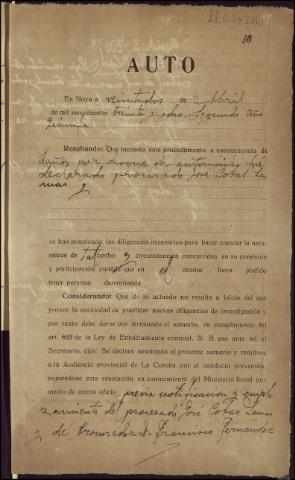 30
AUTO
En Noya a veintidos de Abril
de mil novecientos treinta y ocho. Segundo Año
Triunfal
Resultando: Que incoado este procedimiento a consecuencia de
daños por choque de automóvil fué
declarado procesado José Cobas La
mas
se han practicado las diligencias necesarias para hacer constar la natu-
raleza de tal hecho y circunstancias concurridas en su comisión
y participación punible que en el mismo haya podido
tener persona determinada
Considerando: Que de lo actuado no resulta a juicio del que
provee la necesidad de practicar nuevas diligencias de investigación y
por tanto debe darse por terminado el sumario, en cumplimiento del
art. 622 de la Ley de Enjuiciamiento criminal. S. S. por ante mí el
Secretario, dijo: Se declara terminado el presente sumario y remítase
a la Audiencia provincial de La Coruña por el conducto prevenido,
poniéndose esta resolución en conocimiento del Ministerio fiscal por
medio de atento oficio, previa notificacion y empla
zamiento del procesado José Cobas Lamas
y de Procurador D. Francisco Fernandez